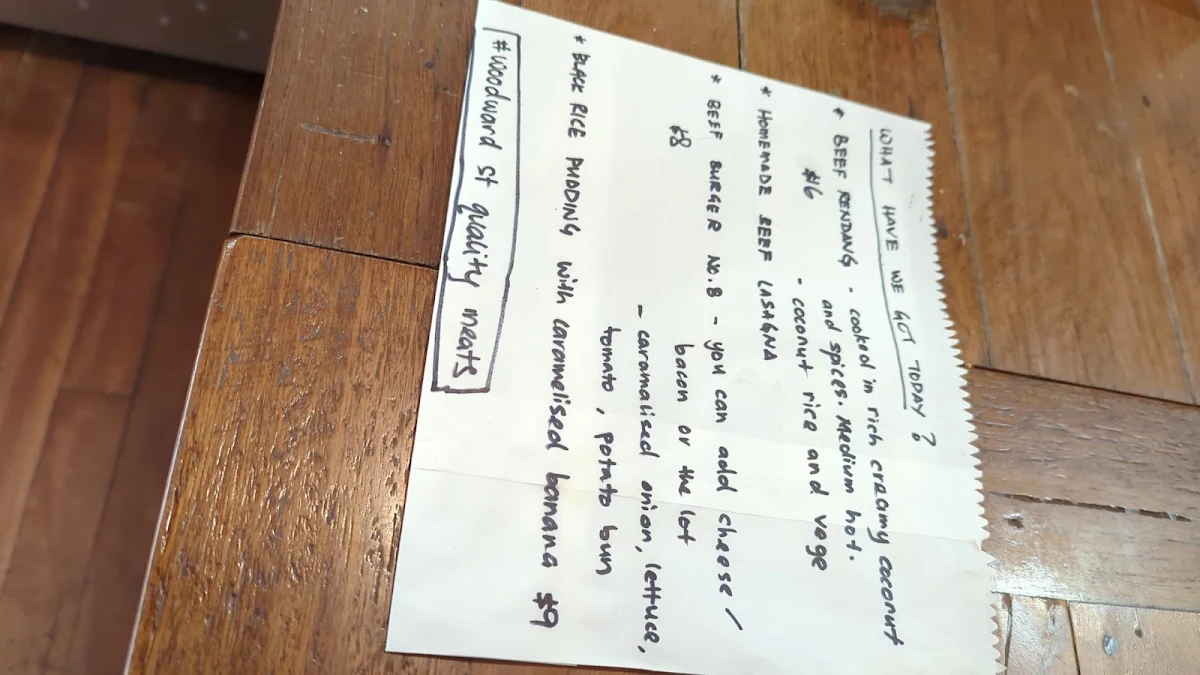 WHAT HAVE WE GOT TODAY?
* BEEF RENDANG - cooked in rich creamy coconut
and spices. Medium hot.
$16 - coconut rice and vege
* HOMEMADE BEEF LASAGNA
* BEEF BURGER NO.8 - you can add cheese /
$8 bacon or the lot
- caramalised onion, lettuce,
tomato, potato bun
* BLACK RICE PUDDING with caramelised banana $9
#woodward st quality meats